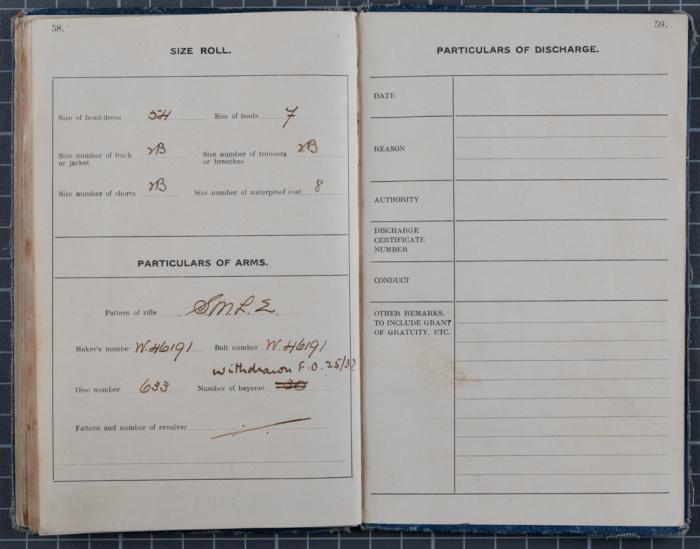 58.
SIZE ROLL.
Size of head-dress 54 Size of boots 7
Size number of frock or jacket 2B Size number of trousers or breeches 2B
Size number of shorts 2B Size number of waterproof coat 8
PARTICULARS OF ARMS.
Pattern of rifle S.M.L.E.
Maker's numbe W.46191 Bolt number W.46191
Withdrawn F.O. 25/32
Disc number 633 Number of bayonet
Pattern and number of revolver
59.
PARTICULARS OF DISCHARGE.
DATE
REASON
AUTHORITY
DISCHARGE
CERTIFICATE
NUMBER
CONDUCT
OTHER REMARKS.
TO INCLUDE GRANT
OF GRATUITY, ETC.